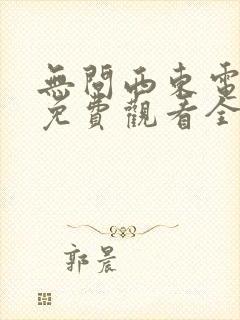 無問西東電
免費觀看全
郭晨